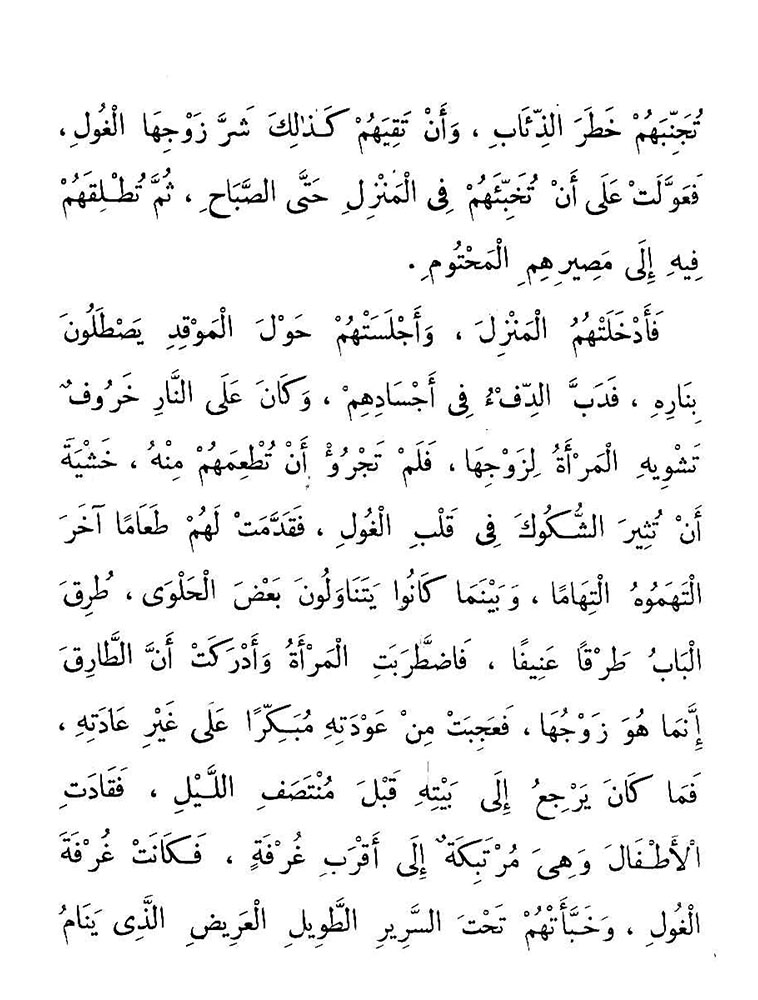 تُجَنِّبَهُمْ خَطَرَ الذِّئَابِ ، وَأَنْ تَقِيَهُمْ كَذٰلِكَ شَرَّ زَوْجِهَا الْغُولِ ،
فَعَوَّلَتْ عَلَى أَنْ تُخَبِّئَهُمْ فِى الْمَنْزِلِ حَتَّى الصَّبَاحِ ، ثُمَّ تُطْلِقَهُمْ
فِيهِ إِلَى مَصِيرِهِمِ الْمَحْتُومِ .
فَأَدْخَلَتْهُمُ الْمَنْزِلَ ، وَأَجْلَسَتْهُمْ حَوْلَ الْمَوْقِدِ يَصْطَلُونَ
بِنَارِهِ ، فَدَبَّ الدِّفْءُ فِى أَجْسَادِهِمْ ، وَكَانَ عَلَى النَّارِ خَرُوفٌ
تَشْوِيهِ الْمَرْأَةُ لِزَوْجِهَا ، فَلَمْ تَجْرُؤْ أَنْ تُطْعِمَهُمْ مِنْهُ ، خَشْيَةَ
أَنْ تُثِيرَ الشُّكُوكَ فِى قَلْبِ الْغُولِ ، فَقَدَّمَتْ لَهُمْ طَعَامًا آخَرَ
الْتَهَمُوهُ الْتِهَامًا ، وَبَيْنَمَا كَانُوا يَتَنَاوَلُونَ بَعْضَ الْحَلْوَى ، طُرِقَ
الْبَابُ طَرْقًا عَنِيفًا ، فَاضْطَّرَبَتِ الْمَرْأَةُ وَأَدْرَكَتْ أَنَّ الطَّارِقَ
إِنَّمَا هُوَ زَوْجُهَا ، فَعَجِبَتْ مِنْ عَوْدَتِهِ مُبَكِّرًا عَلَى غَيْرِ عَادَتِهِ ،
فَمَا كَانَ يَرْجِعُ إِلَى بَيْتِهِ قَبْلَ مُنْتَصَفِ اللَّيْلِ ، فَقَادَتِ
الْأَطْفَالَ وَهِىَ مُرْتَبِكَةٌ إِلَى أَقْرَبِ غُرْفَةٍ ، فَكَانَتْ غُرْفَةَ
الْغُولِ ، وَخَبَّأَتْهُمْ تَحْتَ السَّرِيرِ الطَّوِيلِ الْعَرِيضِ الَّذِى يَنَامُ